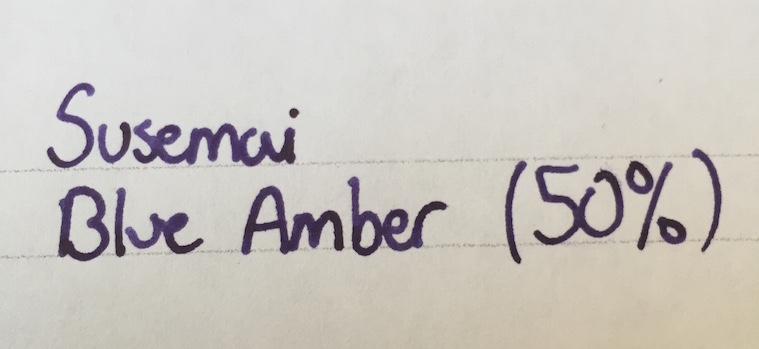 Susemai
Blue Amber (50%)